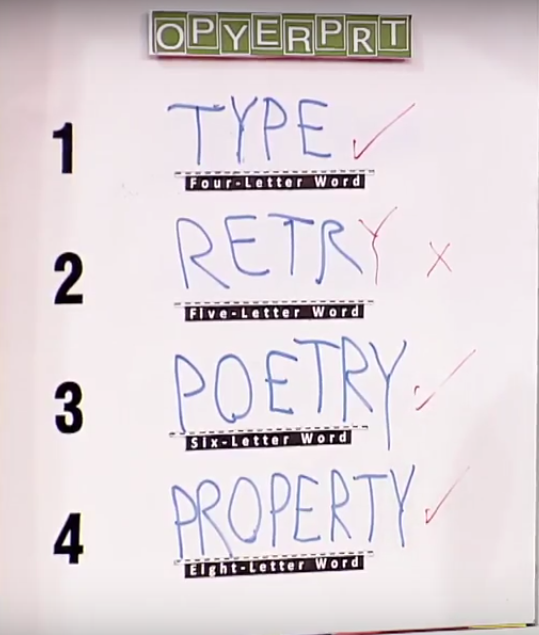 OPYERPRT
1 TYPE ✓
Four-Letter Word
2 RETRY x
Five-Letter Word
3 POETRY ✓
Six-Letter Word
4 PROPERTY ✓
Eight-Letter Word